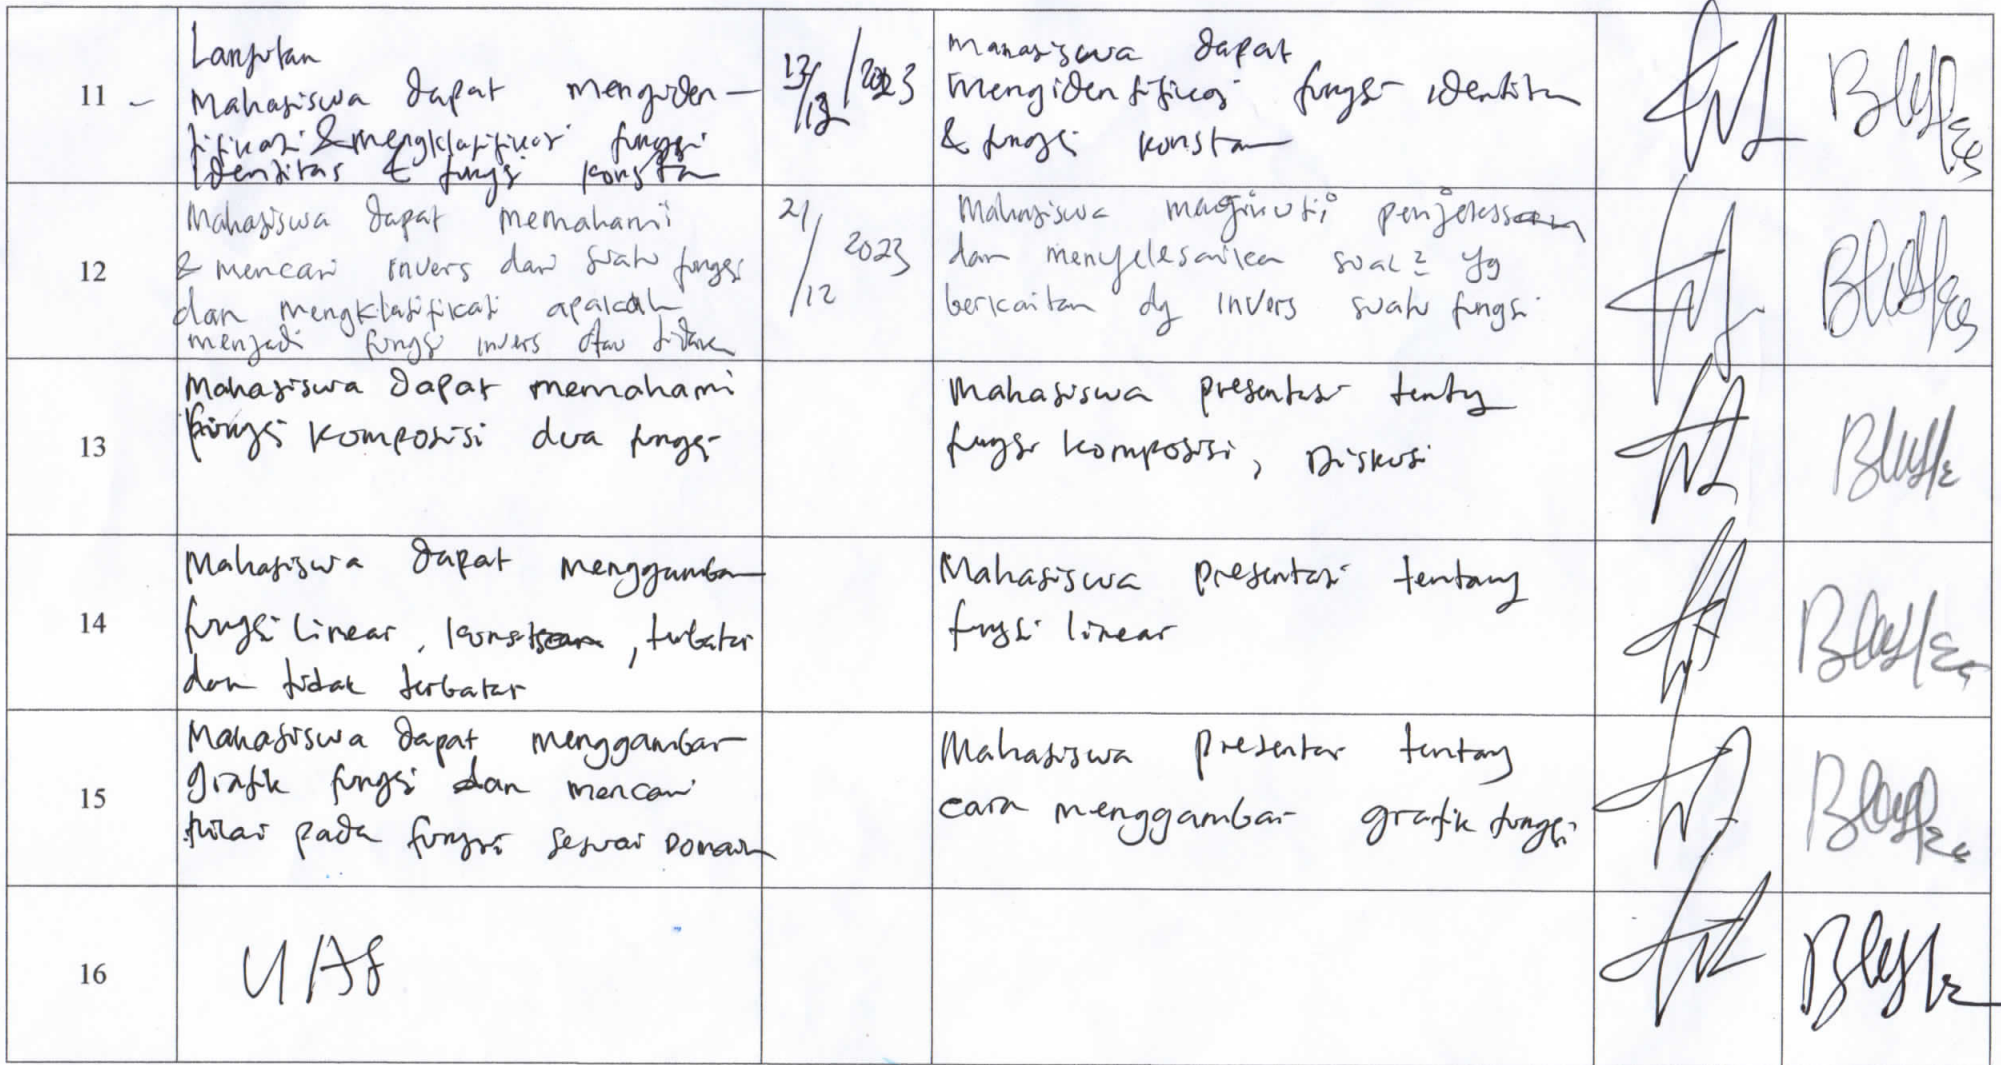 11
Lanjutan
Mahasiswa dapat mengiden-
tifikasi & mengklasifikasi fungsi
Identitas & fungsi konstan
13/12/2023
Mahasiswa dapat
mengidentifikasi fungsi identitas
& fungsi konstan
12
Mahasiswa dapat memahami
& mencari invers dari suatu fungsi
dan mengklasifikasi apakah
menjadi fungsi invers atau tidak
21/12 2023
Mahasiswa mengikuti penjelasan
dan menyelesaikan soal2 yg
berkaitan dg invers suatu fungsi
13
Mahasiswa dapat memahami
fungsi komposisi dua fungsi
Mahasiswa presentasi tentang
fungsi komposisi, Diskusi
14
Mahasiswa dapat menggambar
fungsi linear, konstan, terbatas
dan tidak terbatas
Mahasiswa presentasi tentang
fungsi linear
15
Mahasiswa dapat menggambar
grafik fungsi dan mencari
nilai pada fungsi sesuai Domain
Mahasiswa presentasi tentang
cara menggambar grafik fungsi
16
UAS